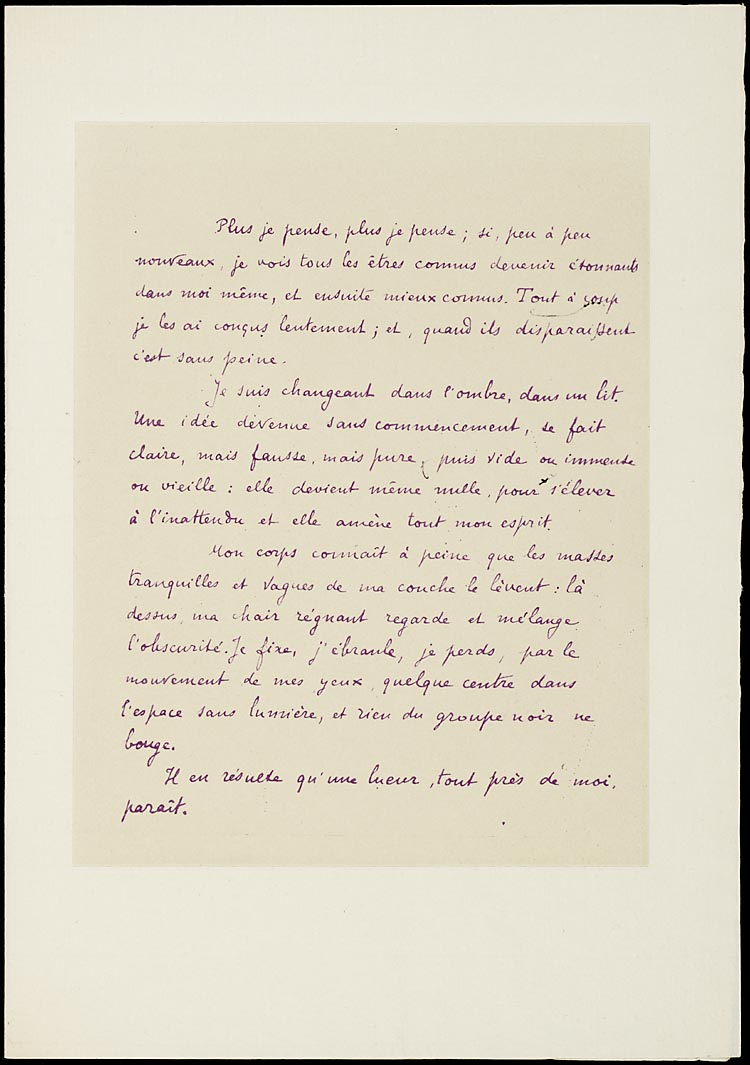 Plus je pense, plus je pense ; si, peu à peu
nouveaux, je vois tous les êtres connus devenir étonnants
dans moi même, et ensuite mieux connus. Tout à coup
je les ai conçus lentement ; et, quand ils disparaissent
c'est sans peine.
Je suis changeant dans l'ombre, dans un lit.
Une idée devenue sans commencement, se fait
claire, mais fausse, mais pure, puis vide ou immense
ou vieille : elle devient même nulle, pour s'élever
à l'inattendu et elle amène tout mon esprit.
Mon corps connaît à peine que les masses
tranquilles et vagues de ma couche le lèvent : là
dessus, ma chair régnant regarde et mélange
l'obscurité. Je fixe, j'ébranle, je perds, par le
mouvement de mes yeux, quelque centre dans
l'espace sans lumière, et rien du groupe noir ne
bouge.
Il en résulte qu'une lueur, tout près de moi,
paraît.